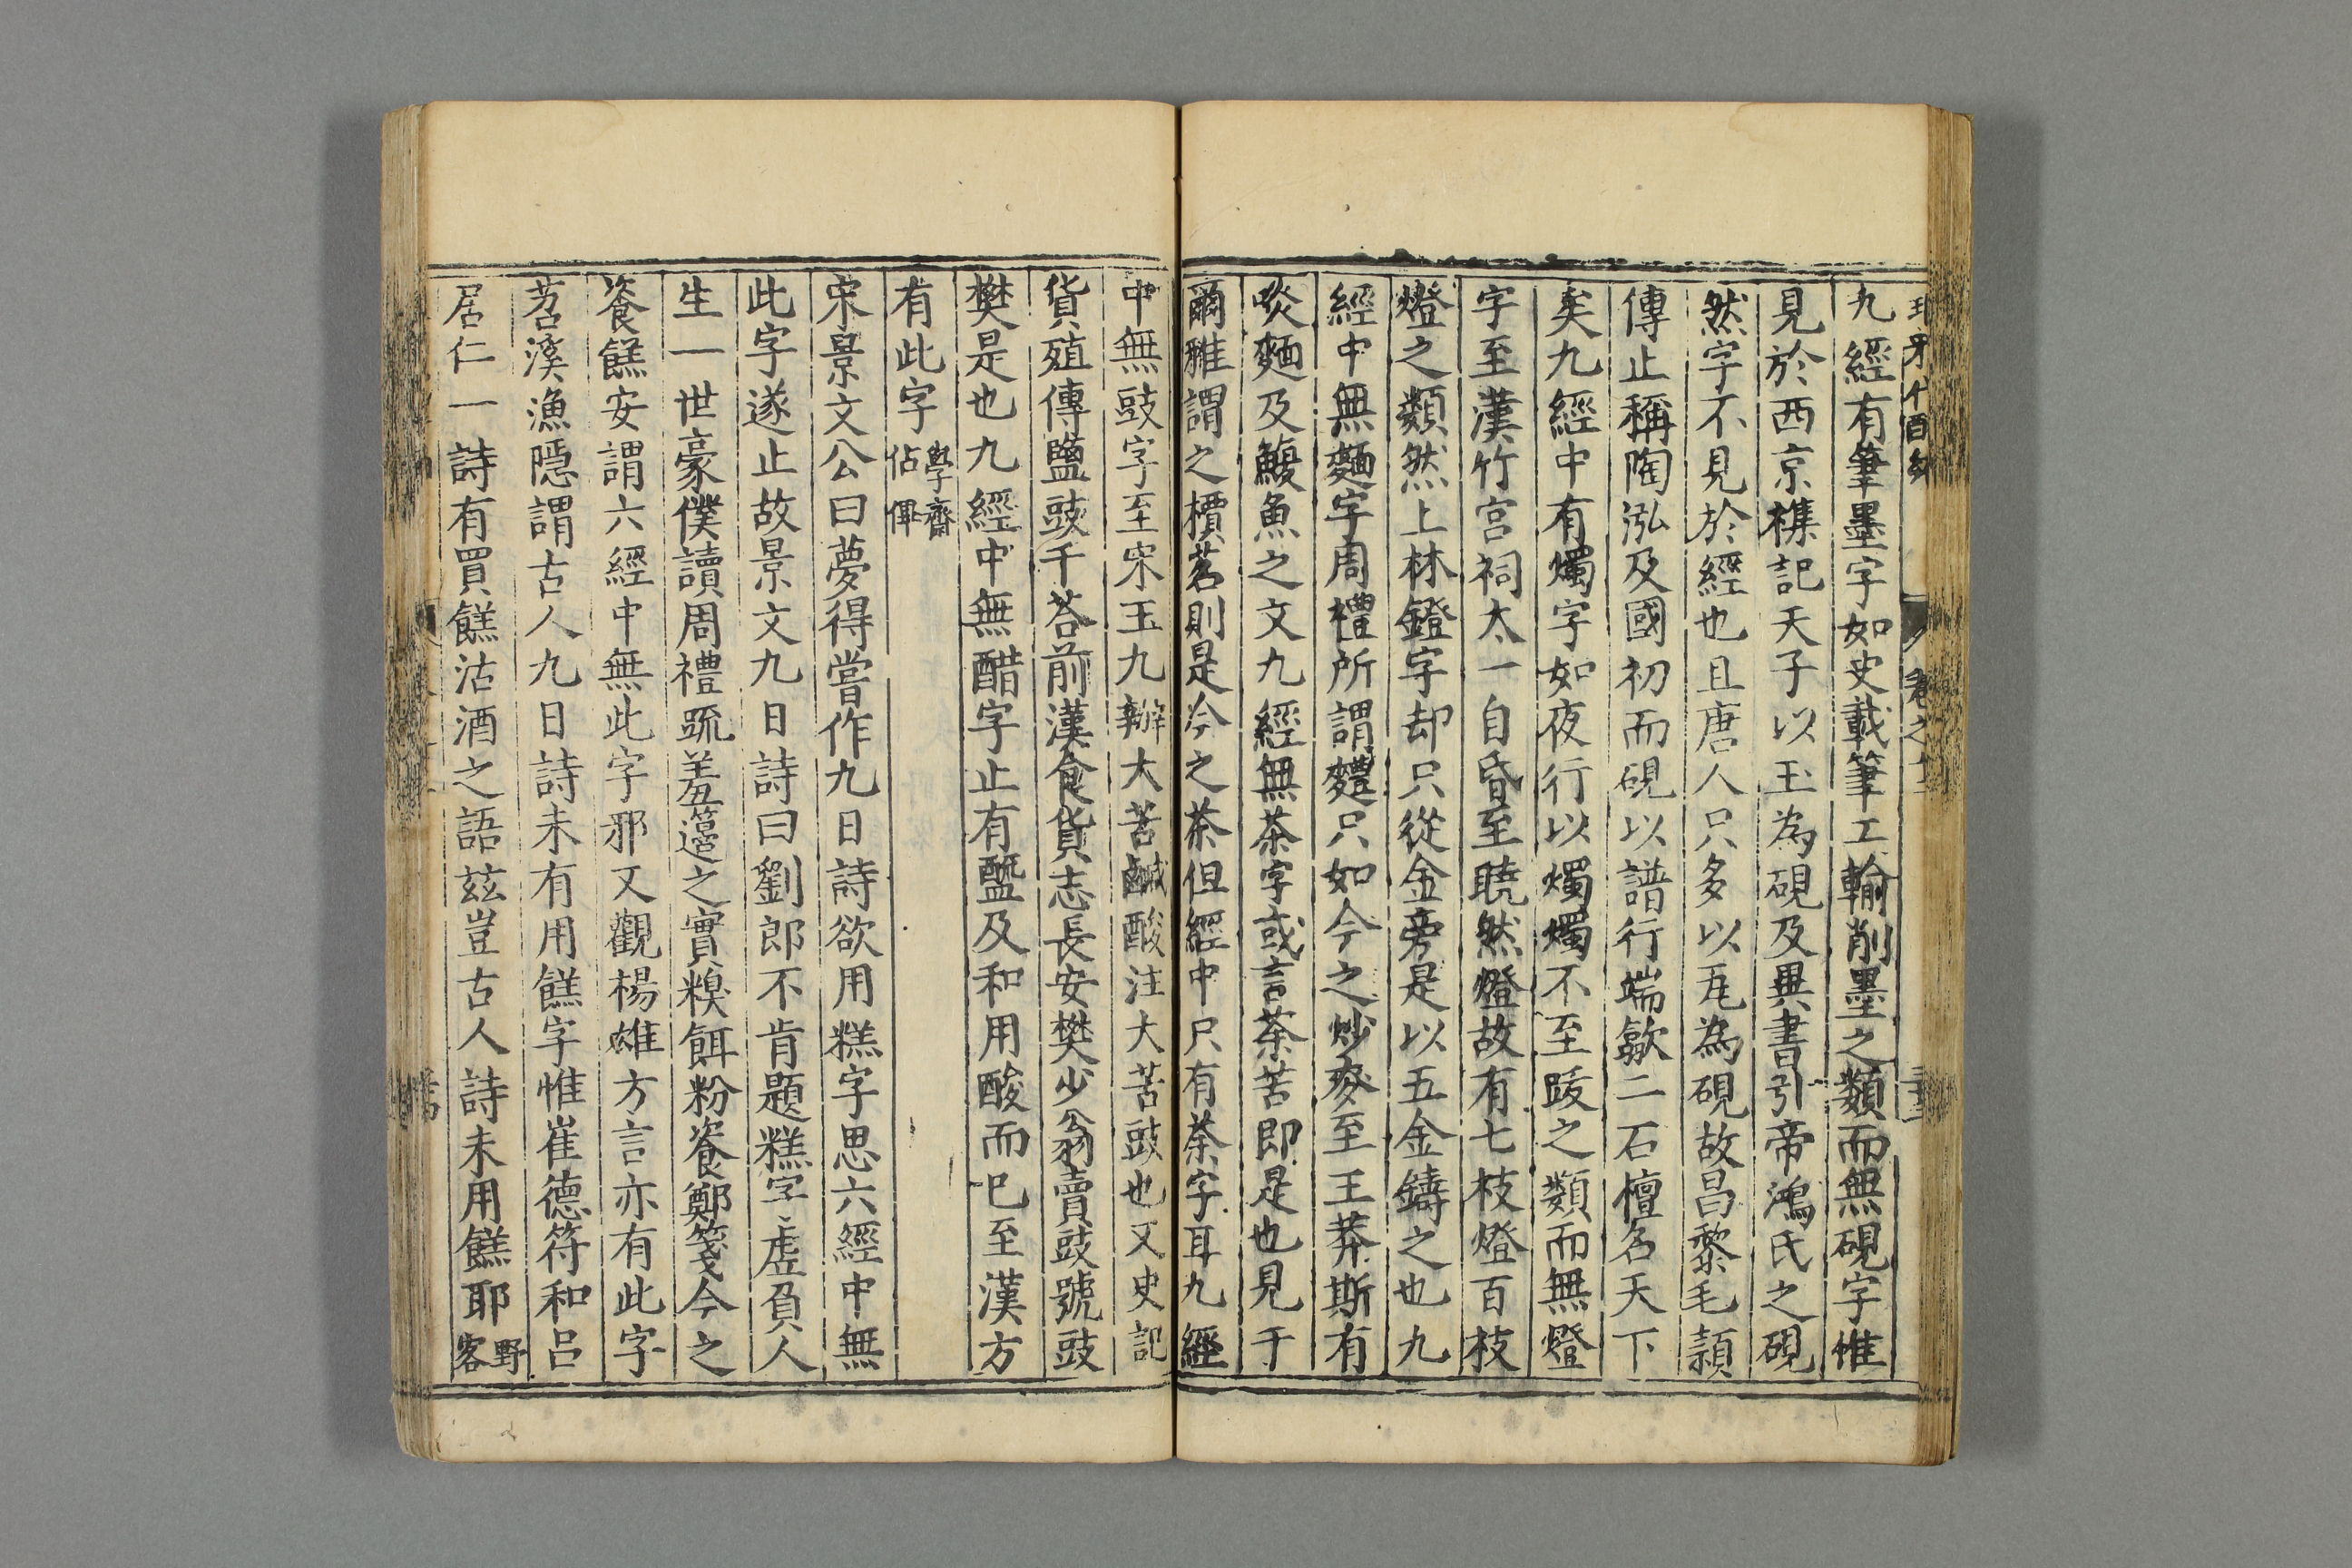 九經有筆墨字如史載筆工輸削墨之類而無硯字惟
見於西京襍記天子以玉為硯及異書引帝鴻氏之硯
然字不見於經也且唐人只多以瓦為硯故昌黎毛頴
傳止稱陶泓及國初而硯以譜行端歙二石檀名天下
矣九經中有燭字如夜行以燭燭不至跋之類而無燈
字至漢竹宮祠太一自昏至曉然燈故有七枝燈百枝
燈之類然上林鐙字却只從金旁是以五金鑄之也九
經中無麵字周禮所謂麷只如今之炒麥至王莽斯有
啖麵及鰒魚之文九經無茶字或言荼苦即是也見于
爾雅謂之檟茗則是今之茶但經中只有荼字耳九經
中無豉字至宋玉九辯大苦鹹酸注大苦豉也又史記
貨殖傳鹽豉千荅前漢食貨志長安樊少翁賣豉號豉
樊是也九經中無醋字止有醯及和用酸而巳至漢方
有此字學齋佔俾
宋景文公曰夢得嘗作九日詩欲用糕字思六經中無
此字遂止故景文九日詩曰劉郎不肯題糕字虛負人
生一世豪僕讀周禮䟽羞籩之實糗餌粉餈鄭箋今之
餈餻安謂六經中無此字邪又觀楊雄方言亦有此字
苕溪漁隱謂古人九日詩未有用餻字惟崔德符和呂
居仁一詩有買餻沽酒之語兹豈古人詩未用餻耶野客